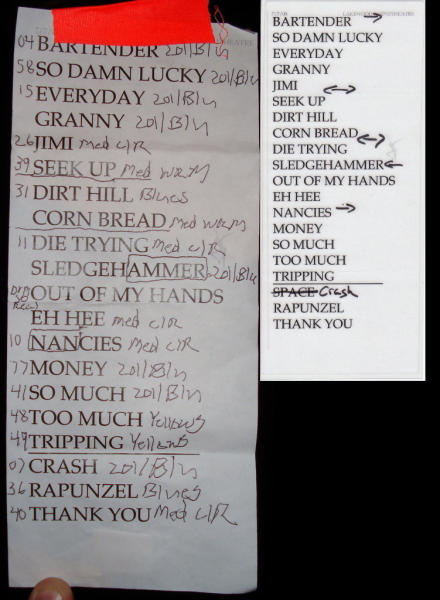 04 BARTENDER 201/B/n
58 SO DAMN LUCKY 201/B/n
15 EVERYDAY 201/B/n
GRANNY 201/B/n
26 JIMI med CIR
39 SEEK UP Med warm
31 DIRT HILL Blues
CORN BREAD med warm
11 DIE TRYING med CIR
SLEDGEHAMMER 201/B/n
OUT OF MY HANDS
EH HEE med CIR
10 NANCIES Med CIR
77 MONEY 201/B/n
41 SO MUCH 201/B/n
48 TOO MUCH Yellows
49 TRIPPING Yellows
07 CRASH 201/B/n
36 RAPUNZEL Blues
40 THANK YOU Med CIR
BARTENDER
SO DAMN LUCKY
EVERYDAY
GRANNY
JIMI
SEEK UP
DIRT HILL
CORN BREAD
DIE TRYING
SLEDGEHAMMER
OUT OF MY HANDS
EH HEE
NANCIES
MONEY
SO MUCH
TOO MUCH
TRIPPING
SPACE Crash
RAPUNZEL
THANK YOU